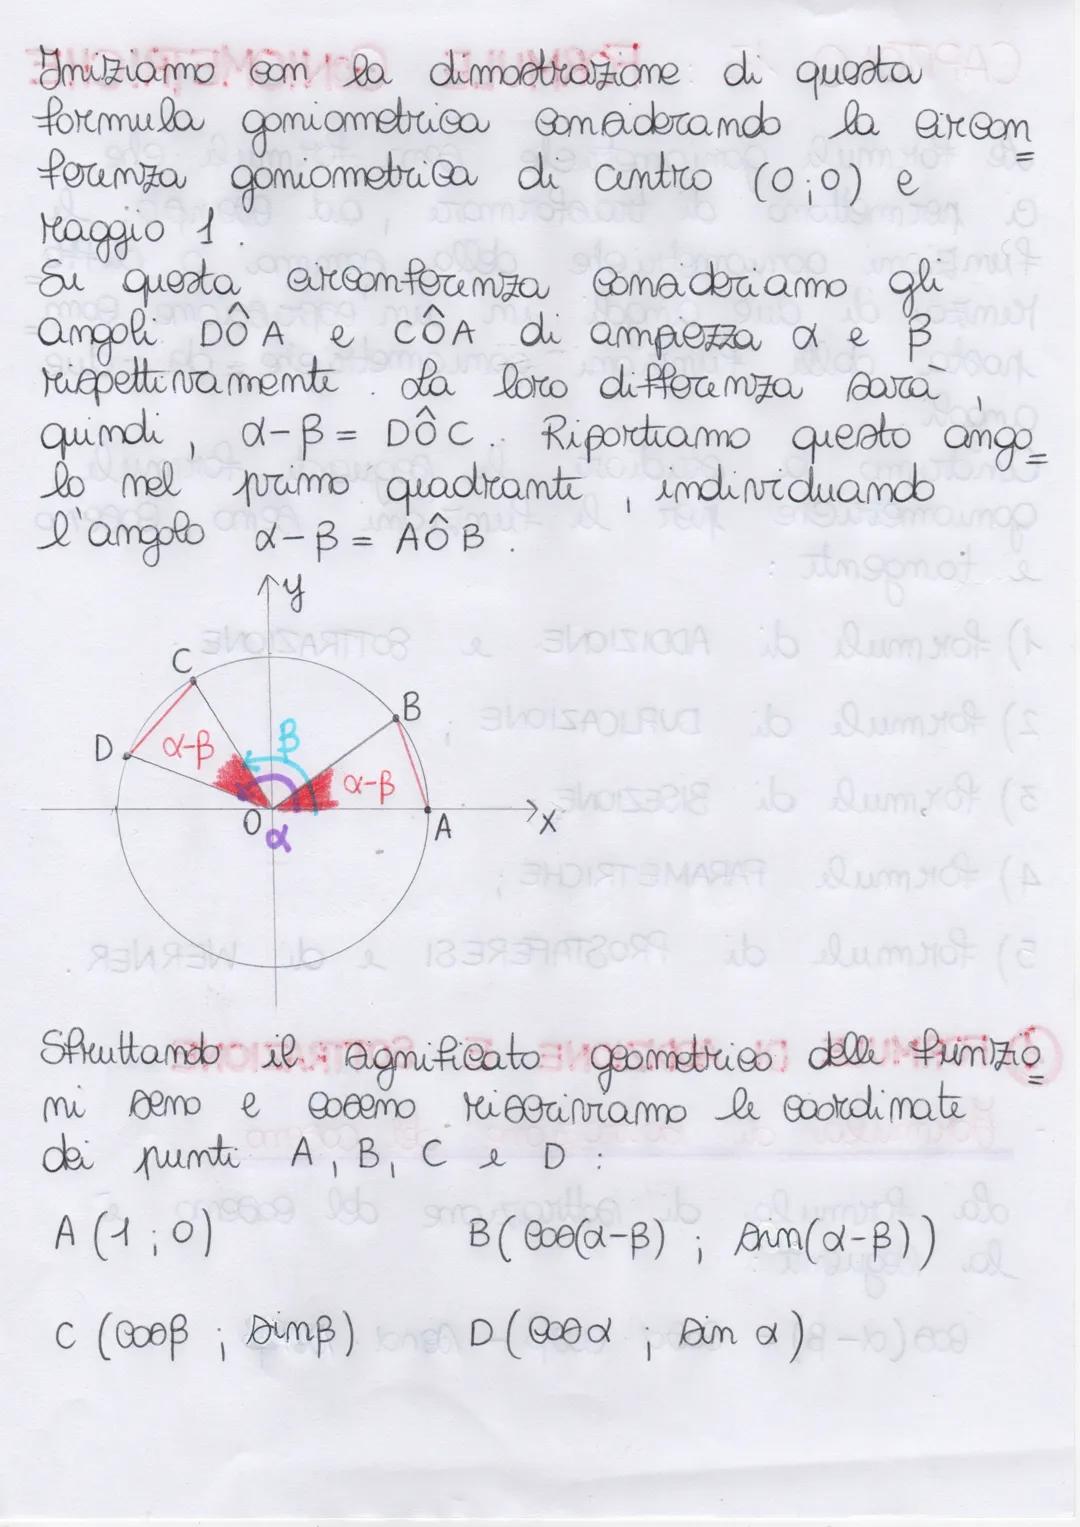 Iniziamo con la dimostrazione di questa
formula goniometrica considerando la circon=
ferenza goniometrica di centro (0;0) e
raggio 1.
Su questa circonferenza consideriamo gli
angoli DÔA e CÔA di ampiezza α e β
rispettivamente. La loro differenza sarà,
quindi, α-β = DÔC. Riportiamo questo ango=
lo nel primo quadrante, individuando
l'angolo α-β = AÔB.
y
C
B
D
α-β
β
α-β
O
α
A
x
Sfruttando il significato geometrico delle funzio=
ni seno e coseno riscriviamo le coordinate
dei punti A, B, C e D:
A (1;0) B(cos(α-β); sin(α-β))
C (cosβ; sinβ) D(cosα; sin α)